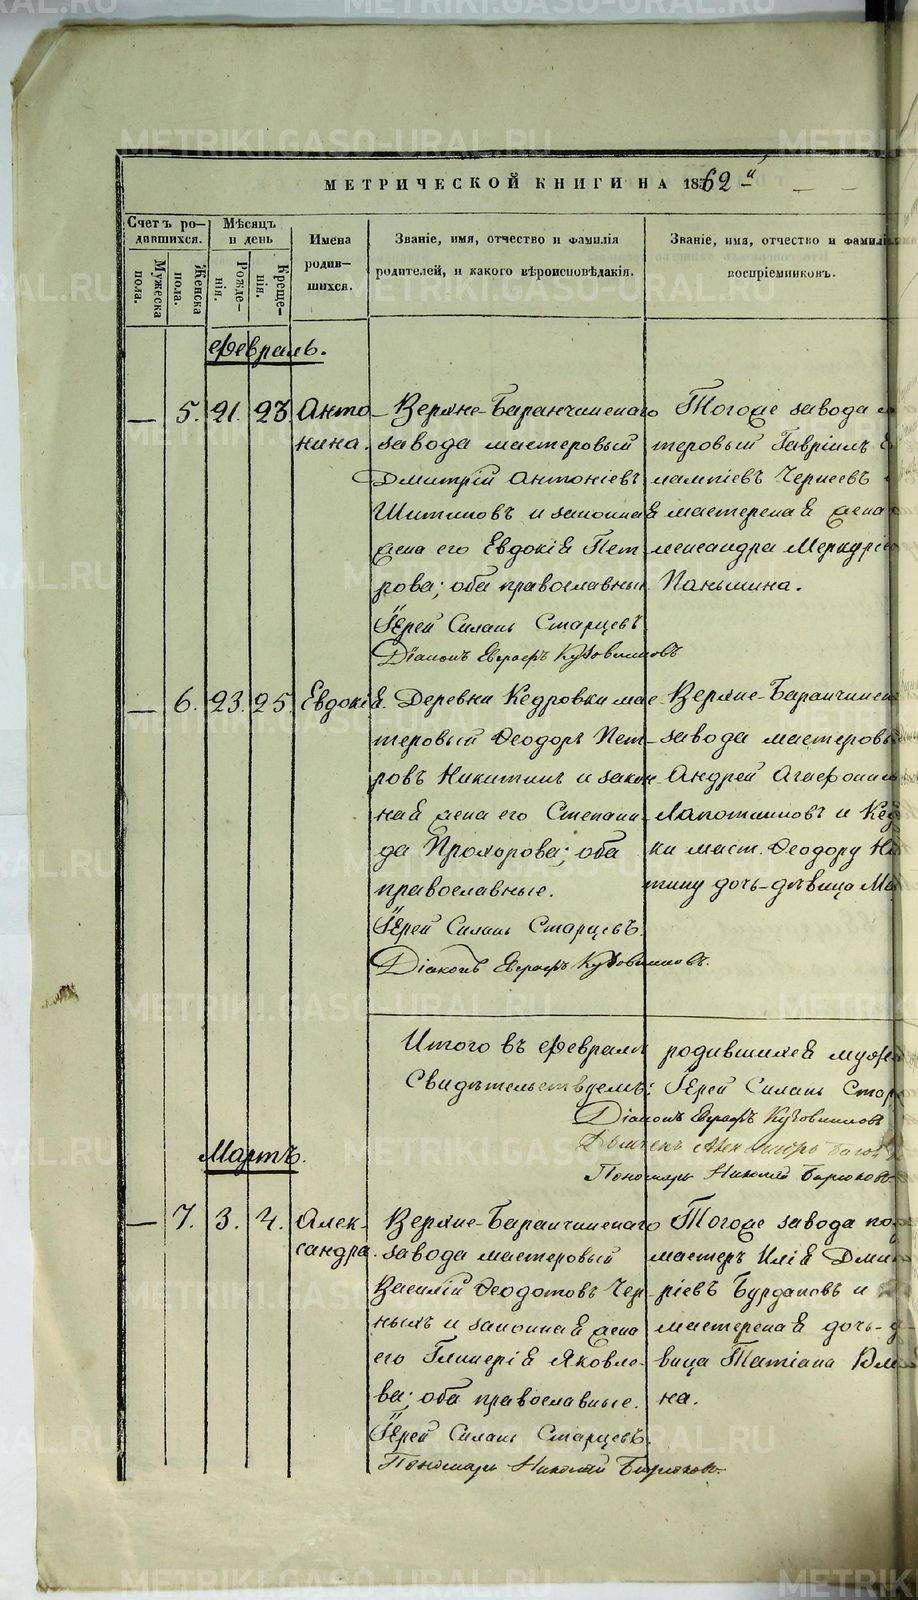 МЕТРИЧЕСКОЙ КНИГИ НА 1862 й
Счетъ ро-
дившихся.
Мужеска
пола.
Женска
пола.
Мѣсяцъ
и день
Рожде-
нія.
Креще-
нія.
Имена
родив-
шихся.
Званіе, имя, отчество и фамилія
родителей, и какого вѣроисповѣданія.
Званіе, имя, отчество и фамилія
воспріемниковъ.
Февраль.
— 5. 21. 23. Анто-
нина.
Верхне-Баранчинскаго
завода мастеровый
Дмитрій Антоніевъ
и законная
жена его Евдокія Пет-
рова; оба православные.
Іерей Силанъ Старцевъ
Діаконъ Евграфъ Кузовниковъ
Тогоже завода
теровый Гавріилъ
лампіевъ
мастерская жена
лександра Меркурьев
Паньшина.
— 6. 23. 25. Евдокія.
Деревни Кедровки мас-
теровый Ѳеодоръ Пет-
ровъ Никитинъ и закон-
ная жена его Степани-
да Прохорова; оба
православные.
Іерей Силанъ Старцевъ.
Діаконъ Евграфъ Кузовниковъ.
Верхне-Баранчинск
завода мастеровы
Андрей Агафоник
Лапотниковъ и Кед
ки маст. Ѳеодору Ни
тину дочь-дѣвица Ма
Итого въ Февралѣ родившихся муже
Свидѣтельствуемъ: Іерей Силанъ Стар
Діаконъ Евграфъ Кузовниковъ
Пономарь Николай Бирюковъ
Мартъ.
— 7. 3. 4. Алек-
сандра.
Верхне-Баранчинскаго
завода мастеровый
Василій Ѳеодотовъ Чер-
ныхъ и законная жена
его Гликерія Яковле-
ва; оба православные.
Іерей Силанъ Старцевъ.
Пономарь Николай Бирюковъ.
Тогоже завода под
мастеръ Илія Дмит
ріевъ Бурдаковъ и
мастерская дочь-дѣ
вица Татіана
на.
METRIKI.GASO-URAL.RU